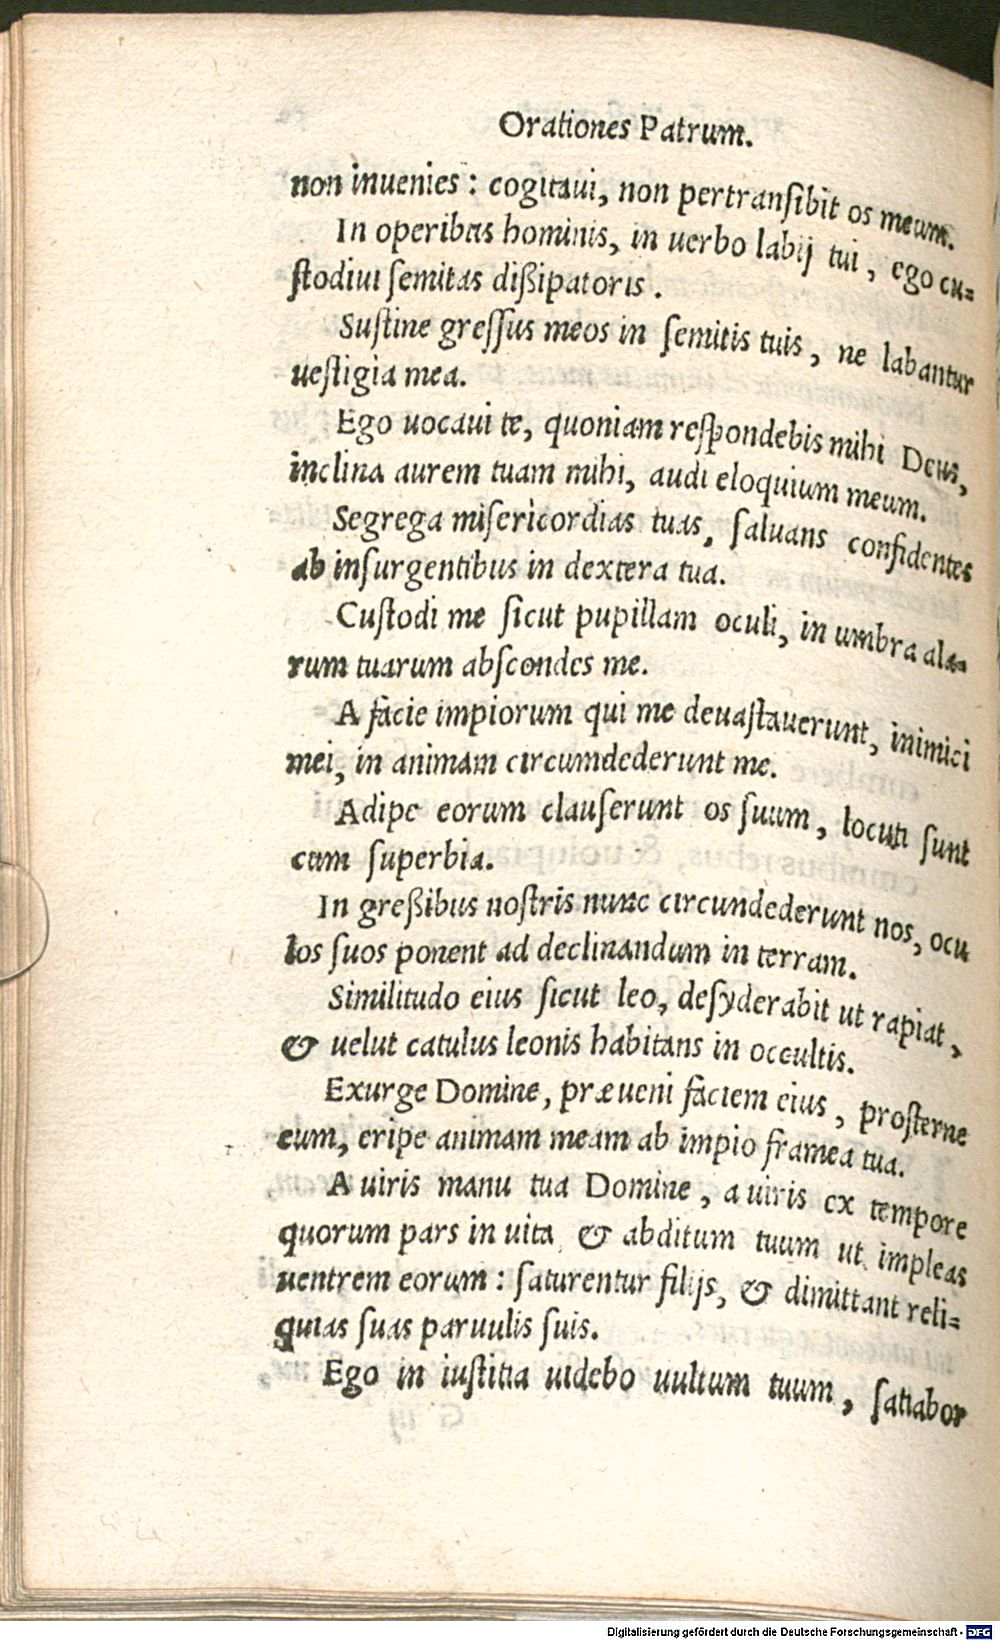 Orationes Patrum.
non inuenies: cogitaui, non pertranſibit os meum.
In operibus hominis, in uerbo labij tui, ego cu=
ſtodiui ſemitas diſsipatoris.
Suſtine greſſus meos in ſemitis tuis, ne labantur
ueſtigia mea.
Ego uocaui te, quoniam reſpondebis mihi Deus,
inclina aurem tuam mihi, audi eloquium meum.
Segrega miſericordias tuas, ſaluans confidentes
ab inſurgentibus in dextera tua.
Cuſtodi me ſicut pupillam oculi, in umbra ala=
rum tuarum abſcondes me.
A facie impiorum qui me deuaſtauerunt, inimici
mei, in animam circumdederunt me.
Adipe eorum clauſerunt os ſuum, locuti ſunt
cum ſuperbia.
In greſsibus noſtris nunc circundederunt nos, ocu
los ſuos ponent ad declinandum in terram.
Similitudo eius ſicut leo, deſyderabit ut rapiat,
& uelut catulus leonis habitans in occultis.
Exurge Domine, præueni faciem eius, proſterne
eum, eripe animam meam ab impio framea tua.
A uiris manu tua Domine, a uiris ex tempore
quorum pars in uita & abditum tuum ut impleas
uentrem eorum: ſaturentur filijs, & dimittant reli=
quias ſuas paruulis ſuis.
Ego in iuſtitia uidebo uultum tuum, ſatiabor
Digitalisierung gefördert durch die Deutsche Forschungsgemeinschaft - DFG